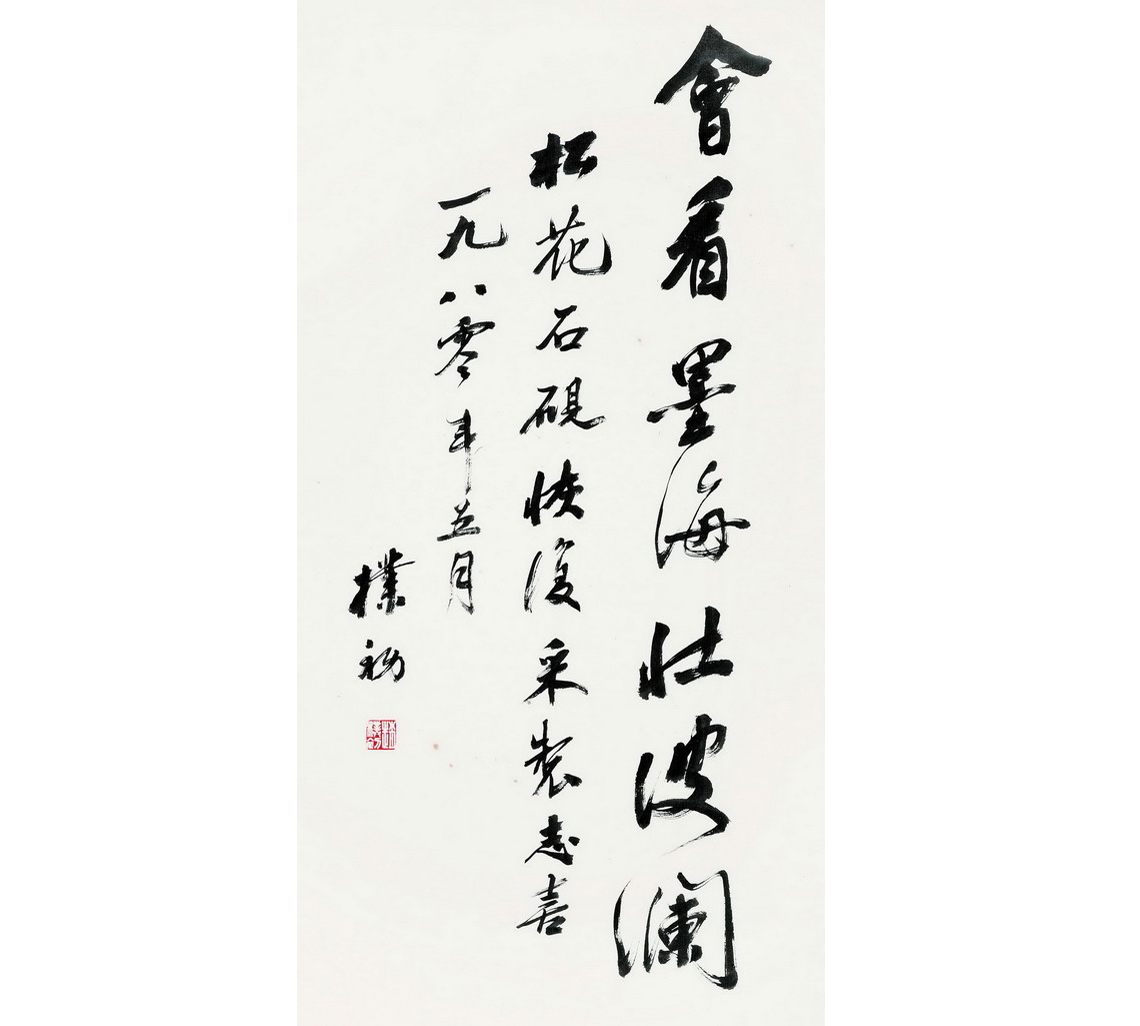 會看墨海壮波澜
松花石硯恢復采製志喜
一九八零年五月
樸初